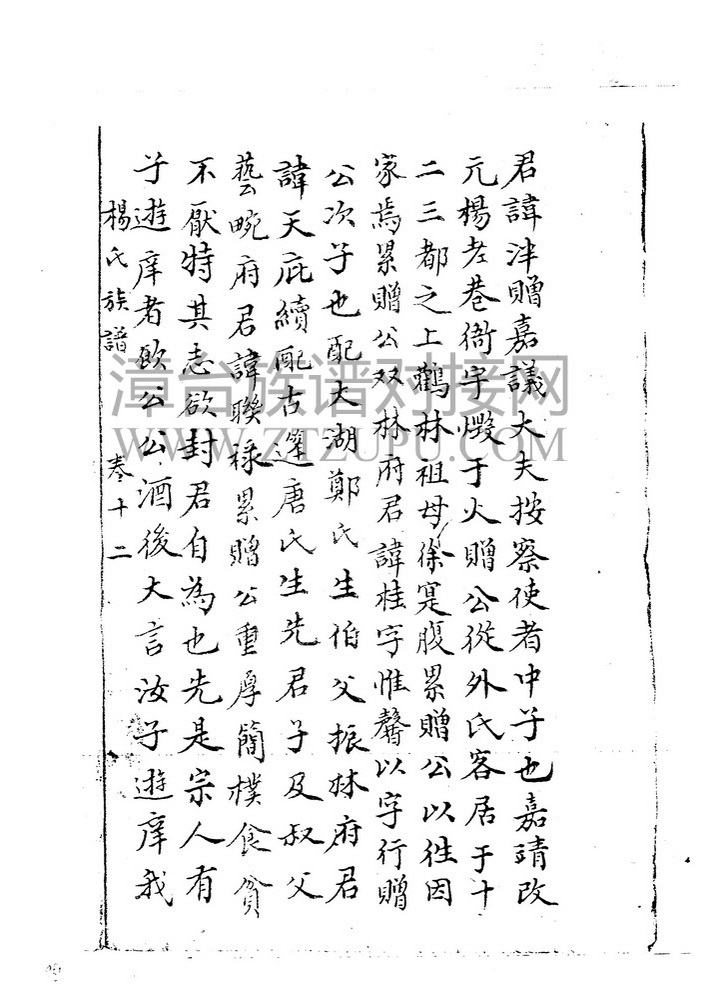 君諱津贈嘉議大夫按察使者中子也嘉靖改
元楊老巷衙宇燬于火贈公從外氏客居于十
二三都之上鶴林祖母徐寔腹累贈公以徃因
家焉累贈公双林府君諱桂字惟馨以字行贈
公次子也配大湖鄭氏生伯父振林府君
諱天庇續配古蓬唐氏生先君子及叔父
藝畹府君諱聯祿累贈公重厚簡樸食貧
不厭特其志欲封君自為也先是宗人有
子遊庠者飲公公酒後大言汝子遊庠我
楊氏族譜 卷十二
漳台族谱对接网
WWW.ZTZUPU.COM